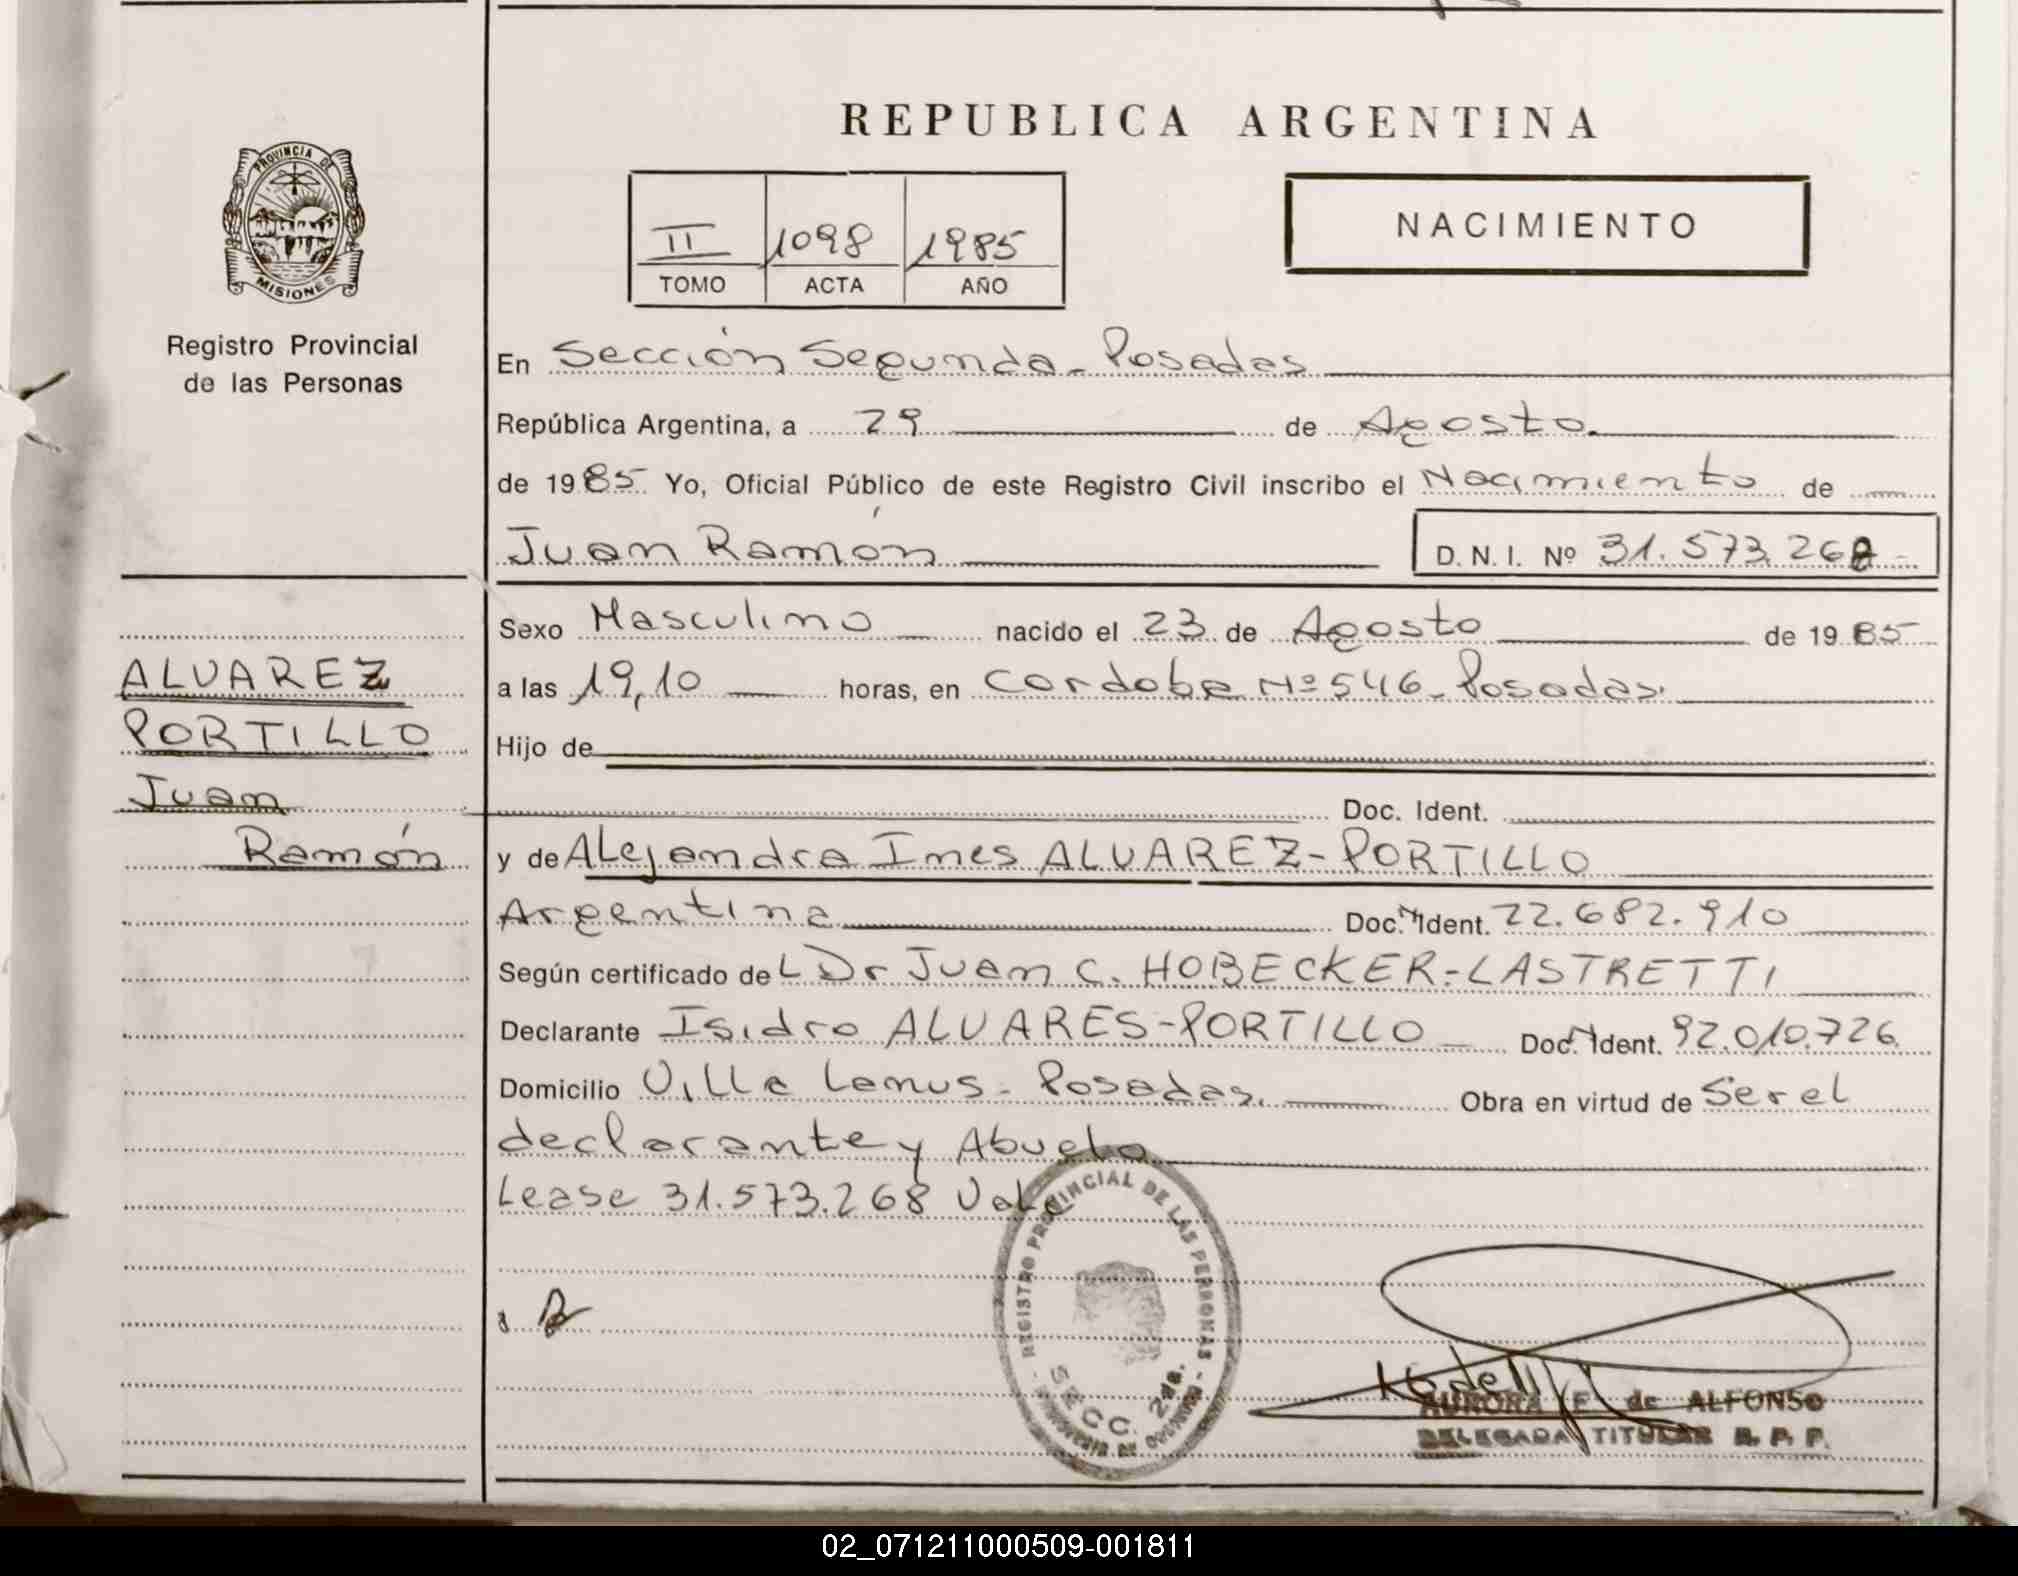 REPUBLICA ARGENTINA
PROVINCIA DE
MISIONES
Registro Provincial
de las Personas
II 1098 1985
TOMO ACTA AÑO
NACIMIENTO
En Sección Segunda - Posadas
República Argentina, a 29 de Agosto
de 1985 Yo, Oficial Público de este Registro Civil inscribo el Nacimiento de
Juan Ramón D. N. I. Nº 31.573.268
Sexo Masculino nacido el 23 de Agosto de 1985
a las 19,10 horas, en Cordoba Nº 546 - Posadas.
Hijo de
Doc. Ident.
y de Alejandra Ines ALVAREZ-PORTILLO
Argentina Doc. Ident. 22.682.910
Según certificado de L Dr Juan C. HOBECKER-LASTRETTI
Declarante Isidro ALVARES-PORTILLO Doc. Ident. 92.010.726
Domicilio Villa Lanus - Posadas. Obra en virtud de Ser el
declarante y Abuelo
Lease 31.573.268 Vale
ALVAREZ
PORTILLO
Juan
Ramón
REGISTRO PROVINCIAL DE LAS PERSONAS
SECC. 2da.
PROVINCIA DE MISIONES
AURORA F. de ALFONSO
DELEGADA TITULAR R. P. P.
02_071211000509-001811